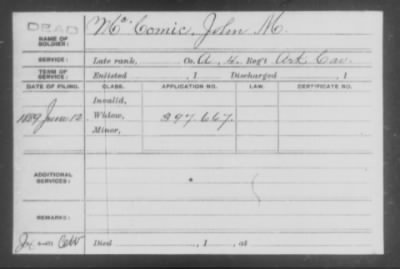 DEAD
NAME OF SOLDIER: Mc Comic, John M.
SERVICE: Late rank, Co. A, 4. Reg't Ark Cav.
TERM OF SERVICE: Enlisted , 1 Discharged , 1
DATE OF FILING. CLASS. APPLICATION NO. LAW. CERTIFICATE NO.
Invalid,
1889 June 12 Widow, 397.667.
Minor,
ADDITIONAL SERVICES:
REMARKS:
Died , 1 , at